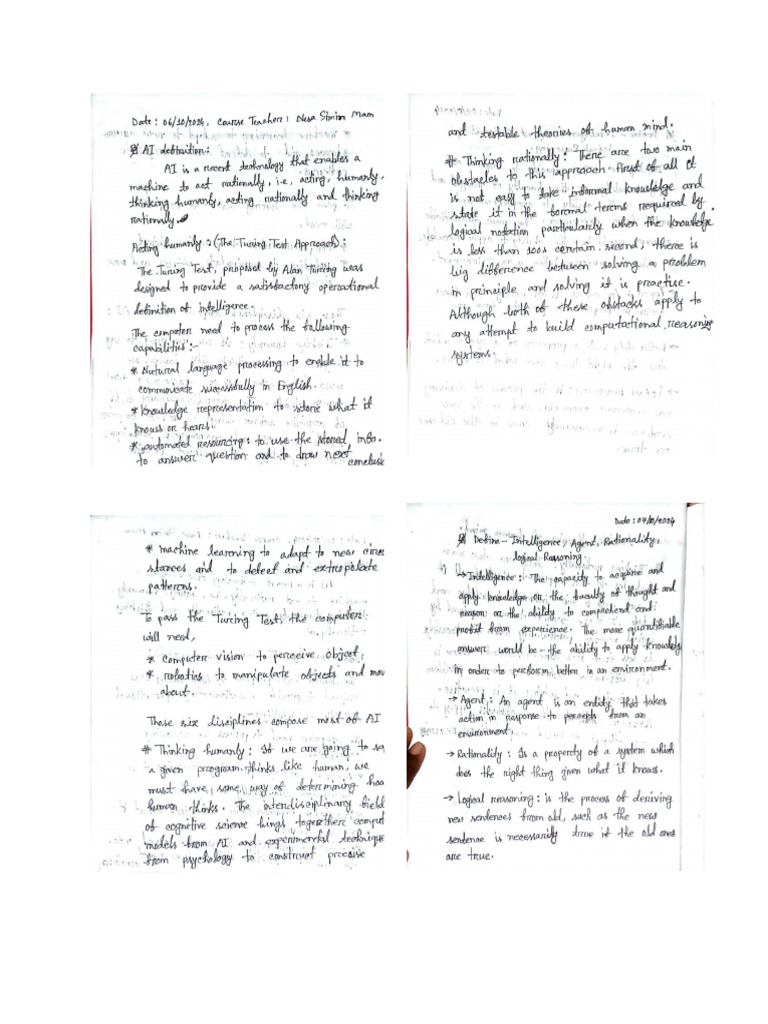 Date: 06/10/2024, Course Teacher: Nesa Simin Mam
AI definition:
AI is a recent technology that enables a
machine to act rationally, i.e, acting, humanly,
thinking humanly, acting rationally and thinking
rationally.
Acting humanly: (The Turing Test Approach):
The Turing Test, proposed by Alan Turing was
designed to provide a satisfactory operational
definition of intelligence.
The computer need to process the following
capabilities:-
* Natural language processing to enable it to
communicate successfully in English.
* Knowledge representation to store what it
knows or hears.
* automated resoursing: to use the stored info.
to answer question and to draw next conclusi
* machine learning to adapt to new circu
stances and to detect and extrapolate
patterns.
To pass the Turing Test, the computer
will need,
* computer vision to perceive object,
* robotics to manipulate objects and mov
about.
Those six disciplines compose most of AI
# Thinking humanly: If we are going to sa
a given program thinks like human, we
must have, some way of determining how
human thinks. The interdisciplinary field
of cognitive science things together comput
models from AI and experimental technique
from psychology to construct precise
and testable theories of human mind.
# Thinking rationally: There are two main
obstacles to this approach first of all it
is not easy to take informal knowledge and
state it in the formal terms required by
logical notation particularity when the knowledge
is less than 100% certain. second, there is
big difference between solving a problem
in principle and solving it is practise.
Although both of these obstacks apply to
any attempt to build computational reasoning
systems.
Date: 07/10/2024
Define - Intelligence, Agent, Rationality,
logical Reasoning.
→ Intelligence: The capacity to acquire and
apply knowledge or the faculty of thought and
reason or the ability to comprehend and
profit from experience. The more quantifiable
answer would be the ability to apply knowledge
in order to perform better in an environment.
→ Agent: An agent is an entity that takes
action in response to percepts from an
environment.
→ Rationality: Is a property of a system which
does the right thing given what it knows.
→ Logical reasoning: is the process of deriving
new sentences from old, such as the new
sentence is necessarily true if the old ones
are true.